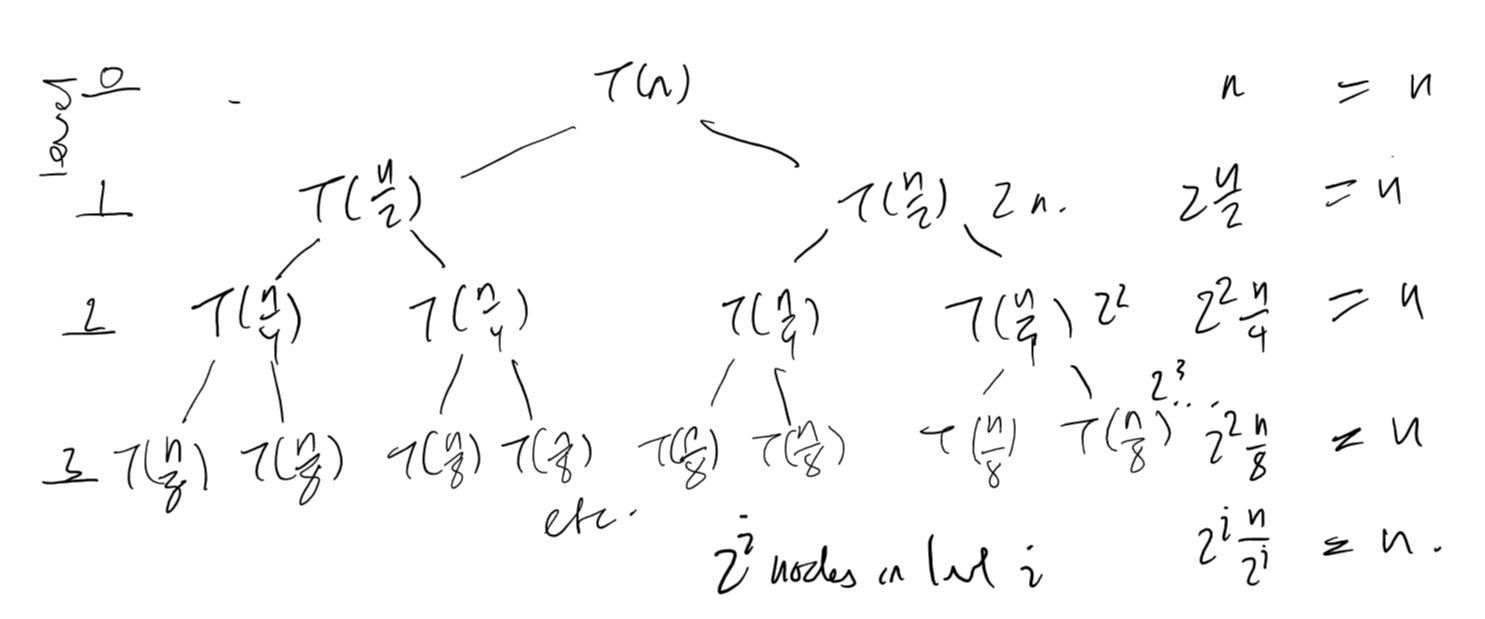 levels
0 T(n) n = n
1 T(n/2) T(n/2) 2n. 2 n/2 = n
2 T(n/4) T(n/4) T(n/4) T(n/4) 2^2 2^2 n/4 = n
2^3
3 T(n/8) T(n/8) T(n/8) T(n/8) T(n/8) T(n/8) T(n/8) T(n/8) ... 2^2 n/8 = n
etc.
2^i nodes in lvl i 2^i n/2^i = n.